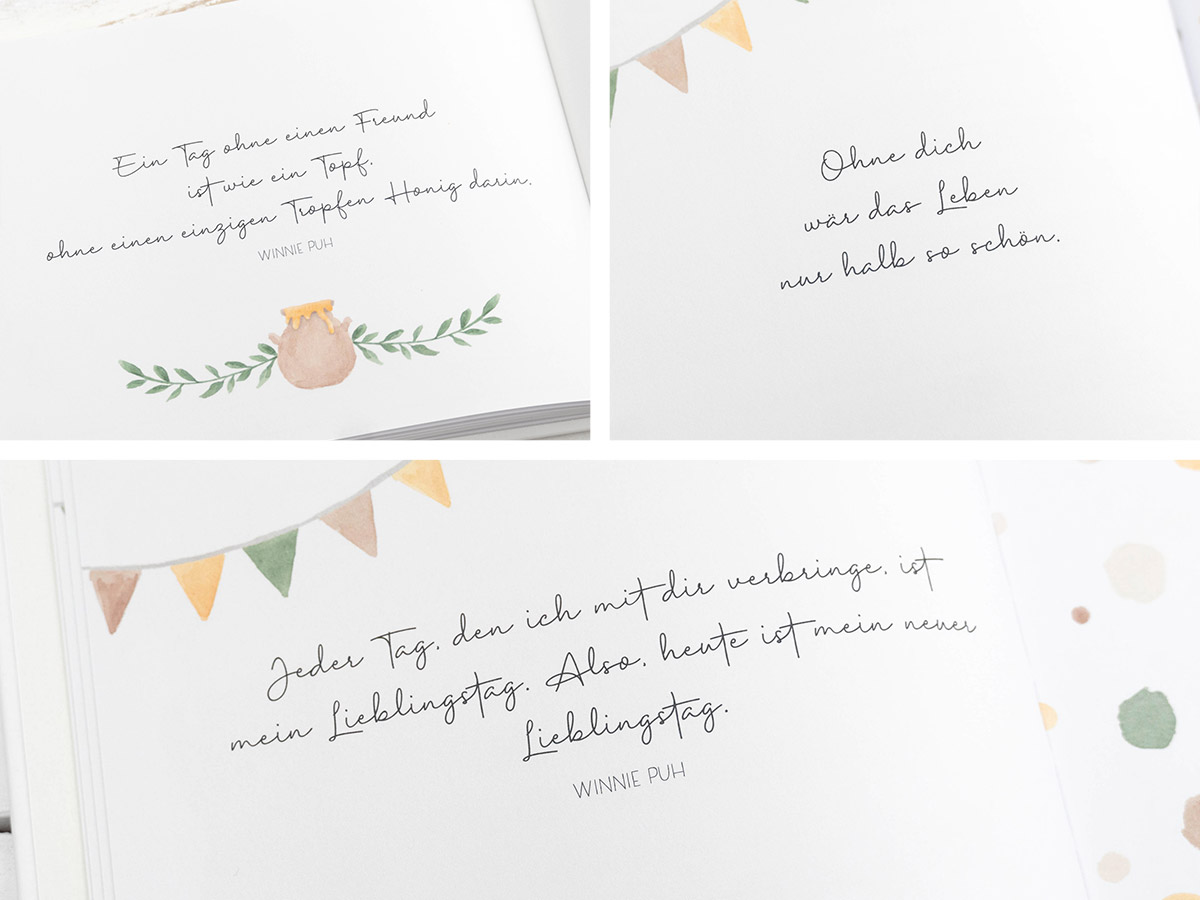 Ein Tag ohne einen Freund
ist wie ein Topf,
ohne einen einzigen Tropfen Honig darin.
WINNIE PUH
Ohne dich
wär das Leben
nur halb so schön.
Jeder Tag, den ich mit dir verbringe, ist
mein Lieblingstag. Also, heute ist mein neuer
Lieblingstag.
WINNIE PUH